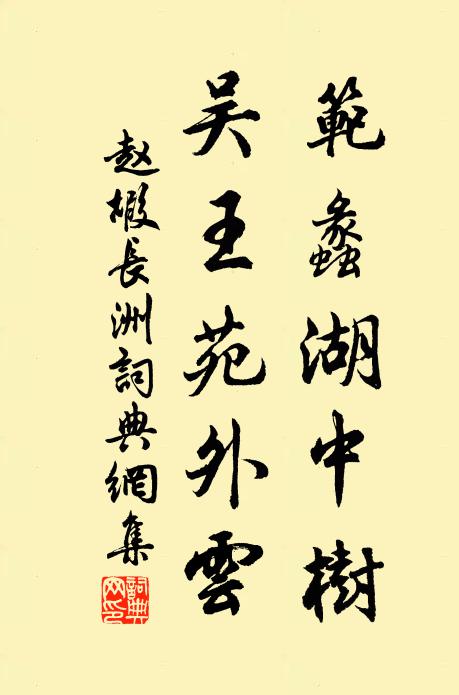 範蠡湖中樹
吴王苑外雲
赵嘏長洲詞典網集
詞典网印